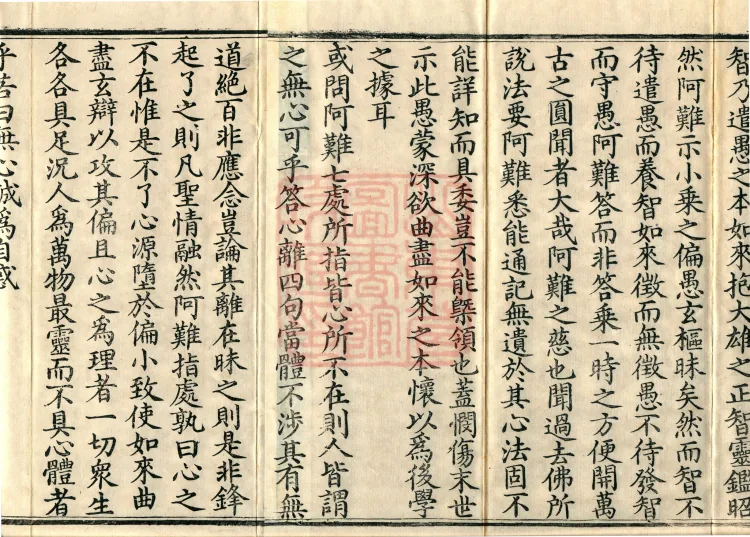 智乃遣愚之本如來抱大雄之正智靈鑑昭
然阿難示小乘之偏愚玄樞昧矣然而智不
待遣愚而養智如來徵而無徵愚不待發智
而守愚阿難答而非答乘一時之方便開萬
古之圓聞者大哉阿難之慈也聞過去佛所
說法要阿難悉能通記無遺於其心法固不
能詳知而具委豈不能槩領也蓋憫傷末世
示此愚蒙深欲曲盡如來之本懷以爲後學
之據耳
或問阿難七處所指皆心所不在則人皆謂
之無心可乎答心離四句當體不涉其有無
道絕百非應念豈論其離在昧之則是非鋒
起了之則凡聖情融然阿難指處孰曰心之
不在惟是不了心源墮於偏小致使如來曲
盡玄辯以攻其偏且心之爲理者一切衆生
各各具足況人爲萬物最靈而不具心體者
乎若曰無心誠爲自惑